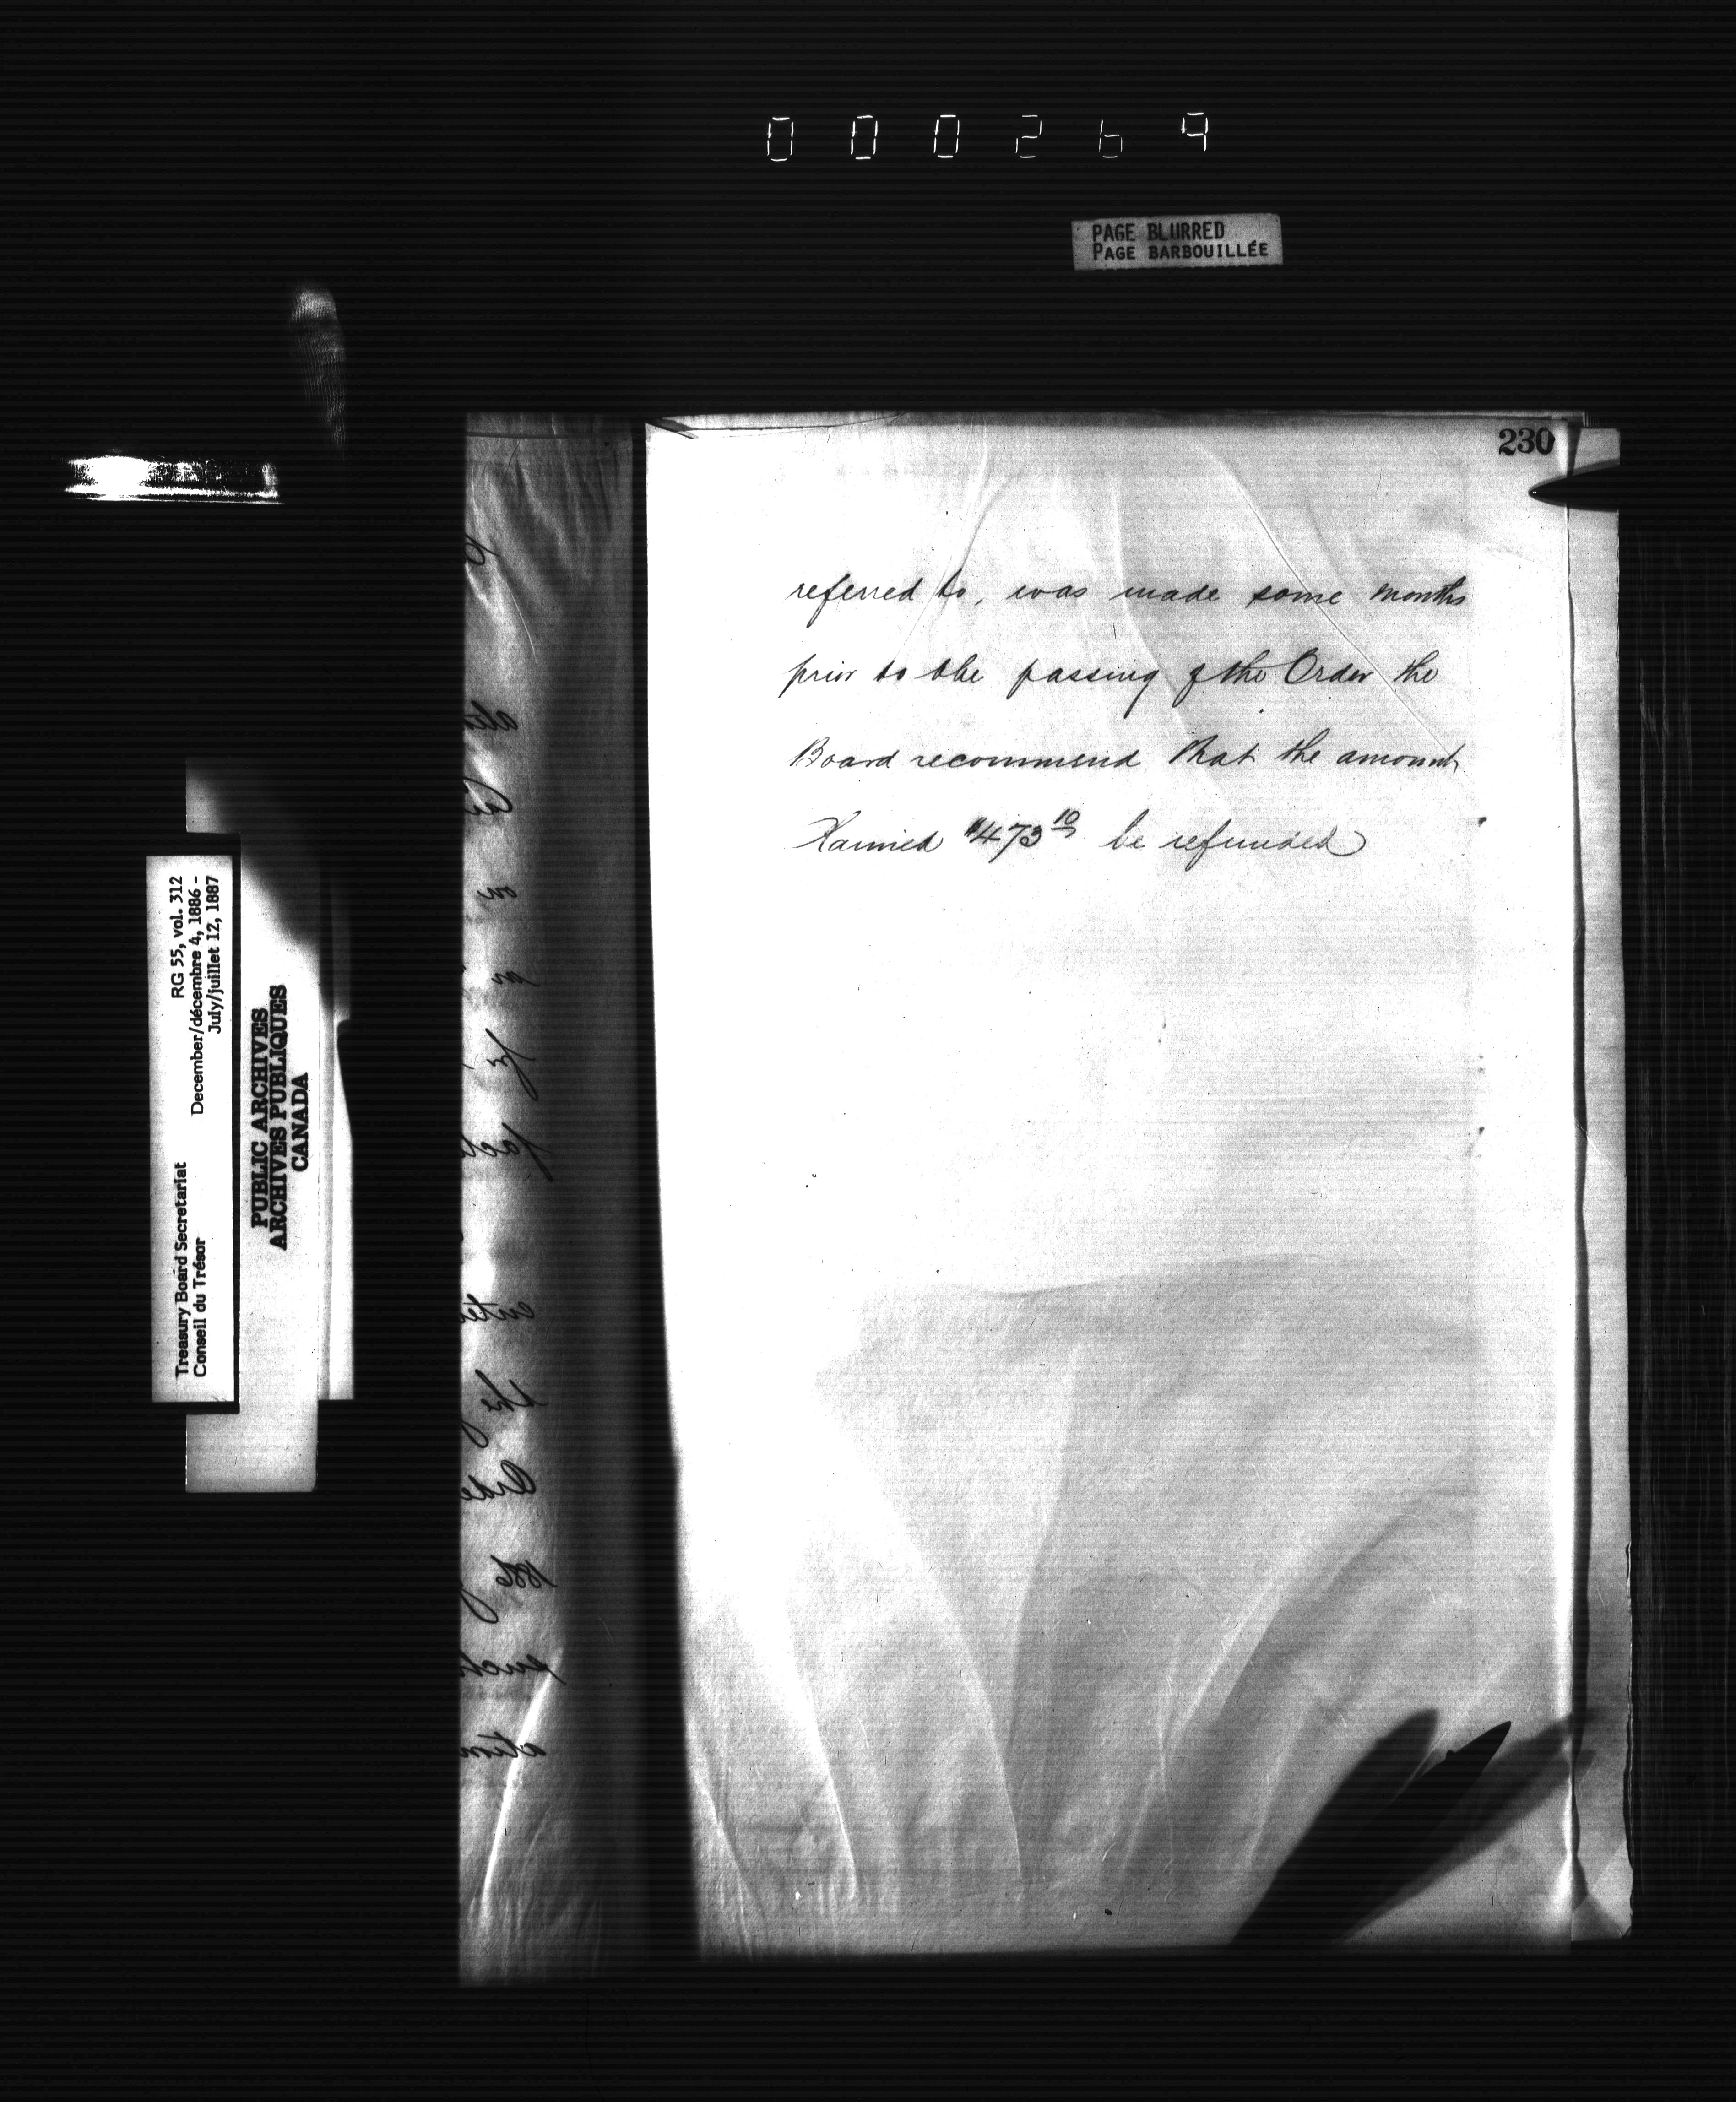 000269
PAGE BLURRED
PAGE BARBOUILLÉE
230
referred to, was made some months
prior to the passing of the Order the
Board recommend that the amount
$473 10 be refunded
Treasury Board Secretariat RG 55, vol. 312
Conseil du Trésor December/décembre 4, 1886 -
July/juillet 12, 1887
PUBLIC ARCHIVES
ARCHIVES PUBLIQUES
CANADA